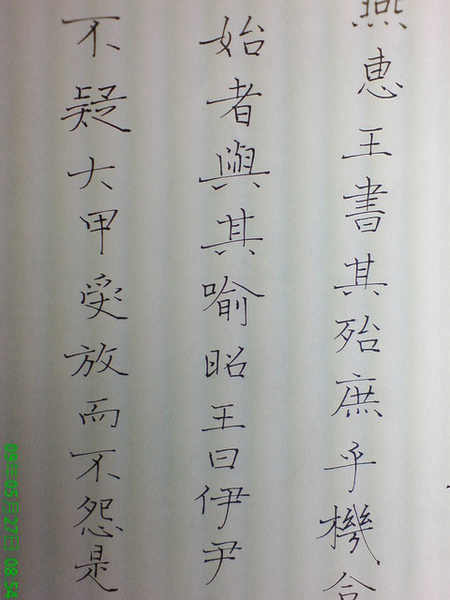 燕恵王書其殆庶乎機合
始者與其喻昭王曰伊尹
不疑大甲受放而不怨是
05月27日 08:54